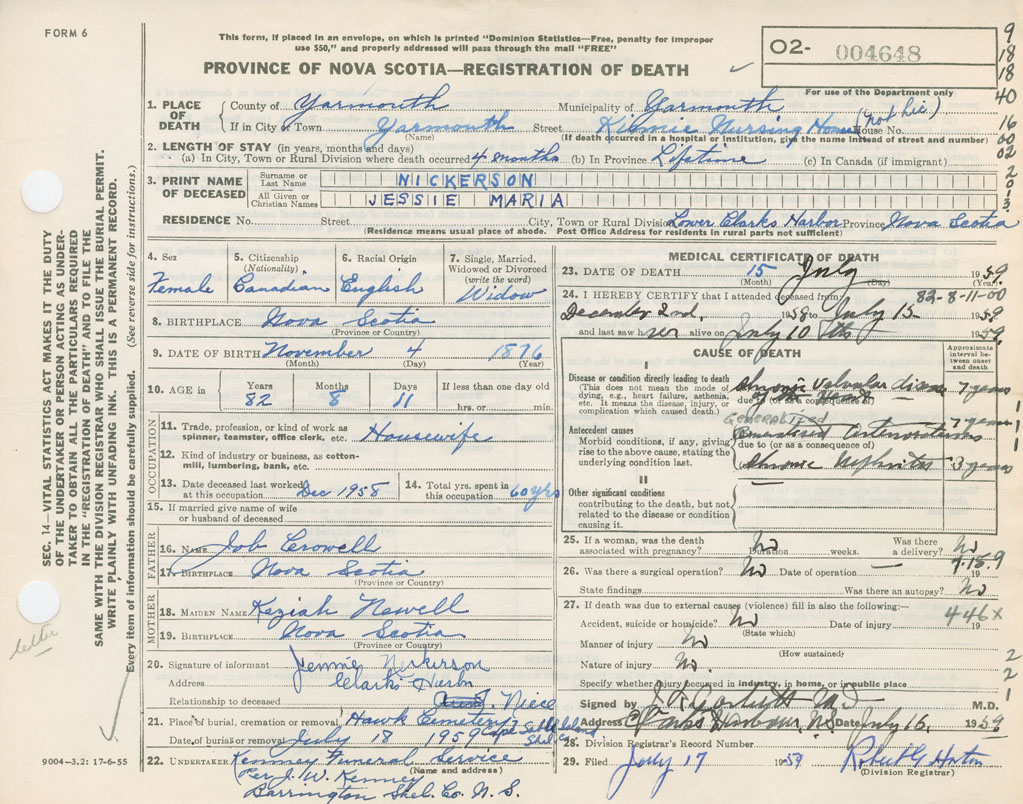 FORM 6
This form, if placed in an envelope, on which is printed "Dominion Statistics—Free, penalty for improper
use $50," and properly addressed will pass through the mail "FREE"
PROVINCE OF NOVA SCOTIA—REGISTRATION OF DEATH
O2- 004648
For use of the Department only
9
18
18
40
16
00
02
2
0
1
3
SEC. 14—VITAL STATISTICS ACT MAKES IT THE DUTY
OF THE UNDERTAKER OR PERSON ACTING AS UNDER-
TAKER TO OBTAIN ALL THE PARTICULARS REQUIRED
IN THE "REGISTRATION OF DEATH" AND TO FILE THE
SAME WITH THE DIVISION REGISTRAR WHO SHALL ISSUE THE BURIAL PERMIT.
WRITE PLAINLY WITH UNFADING INK. THIS IS A PERMANENT RECORD.
Every item of information should be carefully supplied. (See reverse side for instructions.)
1. PLACE OF DEATH County of Yarmouth Municipality of Yarmouth
If in City or Town Yarmouth Street Kilmie Nursing Home (not lic.) House No.
(Name) (If death occurred in a hospital or institution, give the name instead of street and number)
2. LENGTH OF STAY (in years, months and days)
(a) In City, Town or Rural Division where death occurred 4 months (b) In Province Lifetime (c) In Canada (if immigrant)
3. PRINT NAME OF DECEASED Surname or Last Name NICKERSON
All Given or Christian Names JESSIE MARIA
RESIDENCE No. Street City, Town or Rural Division Lower Clarks Harbor Province Nova Scotia
(Residence means usual place of abode. Post Office Address for residents in rural parts not sufficient)
4. Sex Female
5. Citizenship (Nationality) Canadian
6. Racial Origin English
7. Single, Married, Widowed or Divorced (write the word) Widow
8. BIRTHPLACE Nova Scotia
(Province or Country)
9. DATE OF BIRTH November 4 1876
(Month) (Day) (Year)
10. AGE in Years 82 Months 8 Days 11 If less than one day old hrs. or min.
OCCUPATION
11. Trade, profession, or kind of work as spinner, teamster, office clerk, etc. Housewife
12. Kind of industry or business, as cotton-mill, lumbering, bank, etc.
13. Date deceased last worked at this occupation Dec 1958
14. Total yrs. spent in this occupation 60 yrs
15. If married give name of wife or husband of deceased
FATHER
16. NAME Job Crowell
17. BIRTHPLACE Nova Scotia
(Province or Country)
MOTHER
18. MAIDEN NAME Keziah Newell
19. BIRTHPLACE Nova Scotia
(Province or Country)
20. Signature of informant Jennie Nickerson
Address Clarks Harbor
Relationship to deceased Niece
21. Place of burial, cremation or removal Hawk Cemetery Cape Sable Island
Date of burial or removal July 18 1959 Shel Co.
22. UNDERTAKER Kenney Funeral Service
(Name and address)
Per J. W. Kenney
Barrington Shel. Co. N. S.
9004-3.2: 17-6-55
letter
MEDICAL CERTIFICATE OF DEATH
23. DATE OF DEATH 15 July 1959
(Month) (Day) (Year)
82-8-11-00
24. I HEREBY CERTIFY that I attended deceased from
December 2nd. 1958 to July 15 1959
and last saw her alive on July 10 ths 1959
CAUSE OF DEATH
Approximate interval between onset and death
I
Disease or condition directly leading to death
(This does not mean the mode of dying, e.g., heart failure, asthenia, etc. It means the disease, injury, or complication which caused death.)
Chronic Valvular disease of the Heart 7 years
due to (or as a consequence of)
GENERALIZED
Antecedent causes
Morbid conditions, if any, giving rise to the above cause, stating the underlying condition last.
7 years
due to (or as a consequence of)
Chronic Nephritis 3 years
1
1
1
II
Other significant conditions
contributing to the death, but not related to the disease or condition causing it.
25. If a woman, was the death associated with pregnancy? No Duration weeks. Was there a delivery? No
26. Was there a surgical operation? No Date of operation — 7.15.9 19
State findings Was there an autopsy? No
27. If death was due to external causes (violence) fill in also the following:—
Accident, suicide or homicide? No Date of injury 19
(State which)
446x
Manner of injury No
(How sustained)
Nature of injury No.
Specify whether injury occurred in industry, in home, or in public place
2
2
1
Signed by M D M.D.
Address Date July 16 1959
28. Division Registrar's Record Number
29. Filed July 17 1959 Robert G Horton
(Division Registrar)